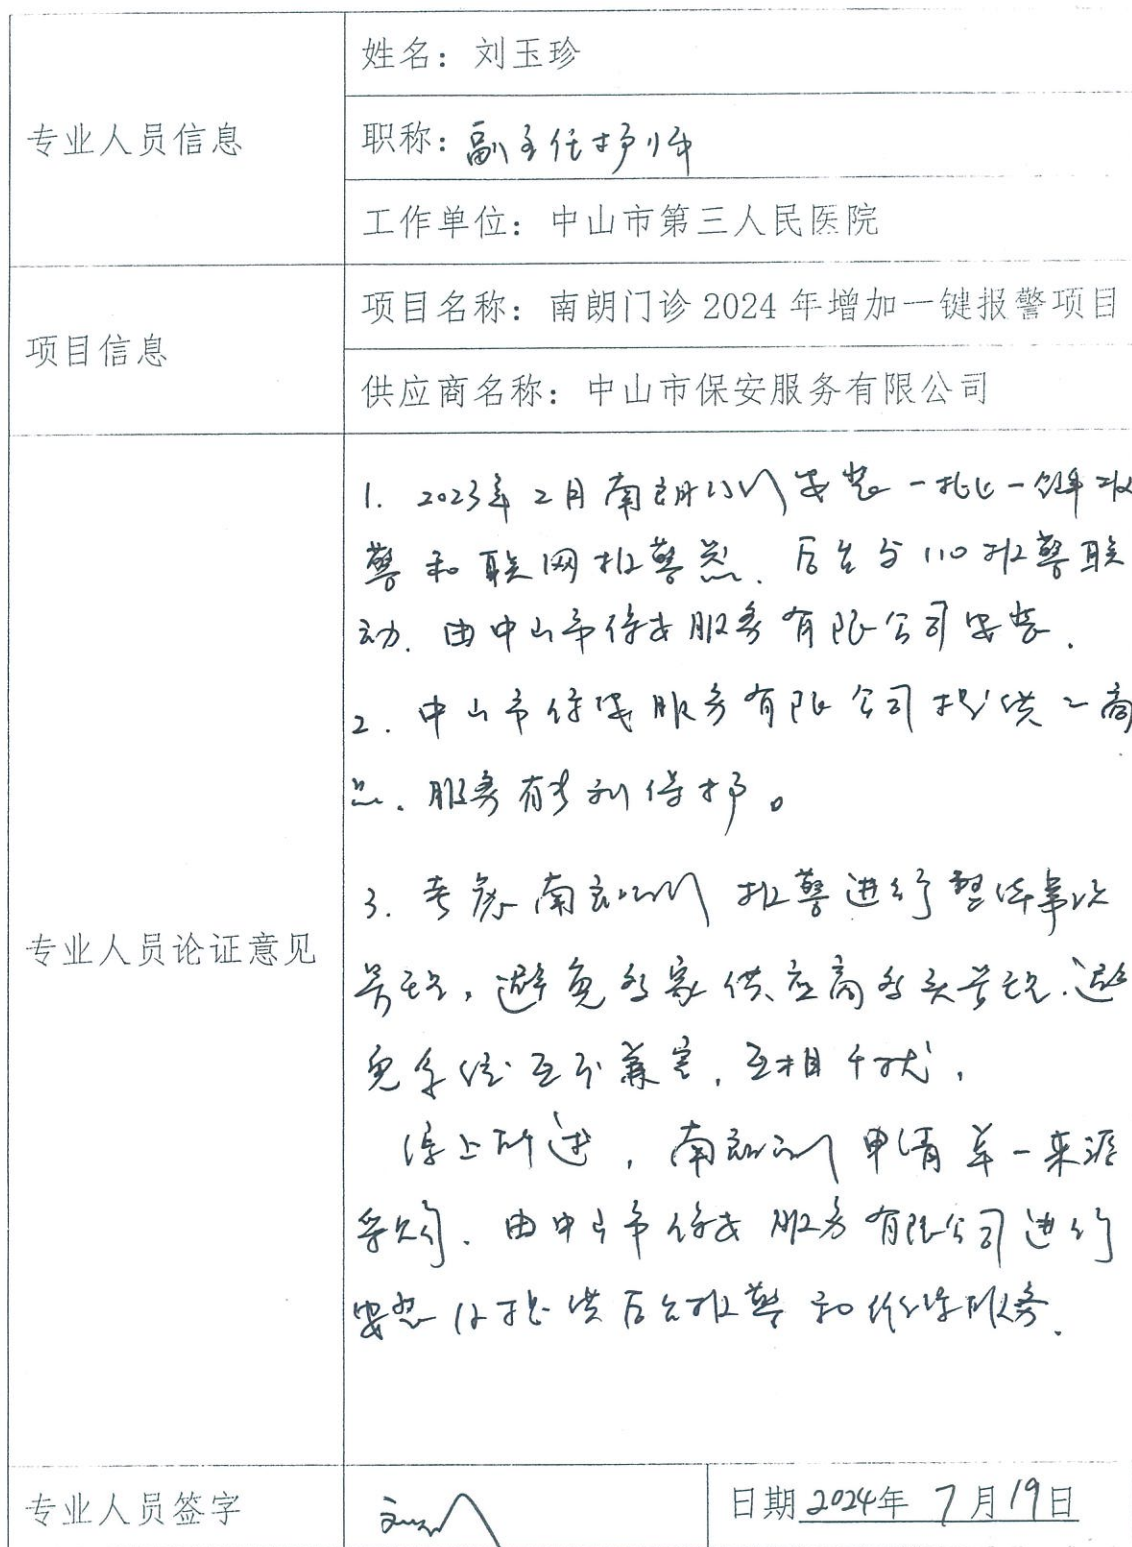 姓名：刘玉珍
专业人员信息
职称：副主任护师
工作单位：中山市第三人民医院
项目名称：南朗门诊 2024 年增加一键报警项目
项目信息
供应商名称：中山市保安服务有限公司
1. 2023年2月南朗门诊安装一批一键报
警和联网报警点、后台与110报警联
动. 由中山市保安服务有限公司安装.
2. 中山市保安服务有限公司提供
服务有专利保护。
3. 考虑南朗门诊报警进行整体
，避免多家供应商多头 . 避
免系统互不兼容, 互相干扰,
专业人员论证意见
综上所述, 南朗门诊申请单一来源
采购. 由中山市保安服务有限公司进行
安装 提供后台报警和维保服务.
专业人员签字
日期 2024年 7月19日